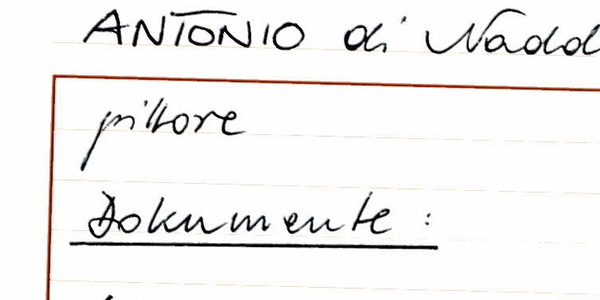 ANTONIO di Nadd
pittore
Dokumente :